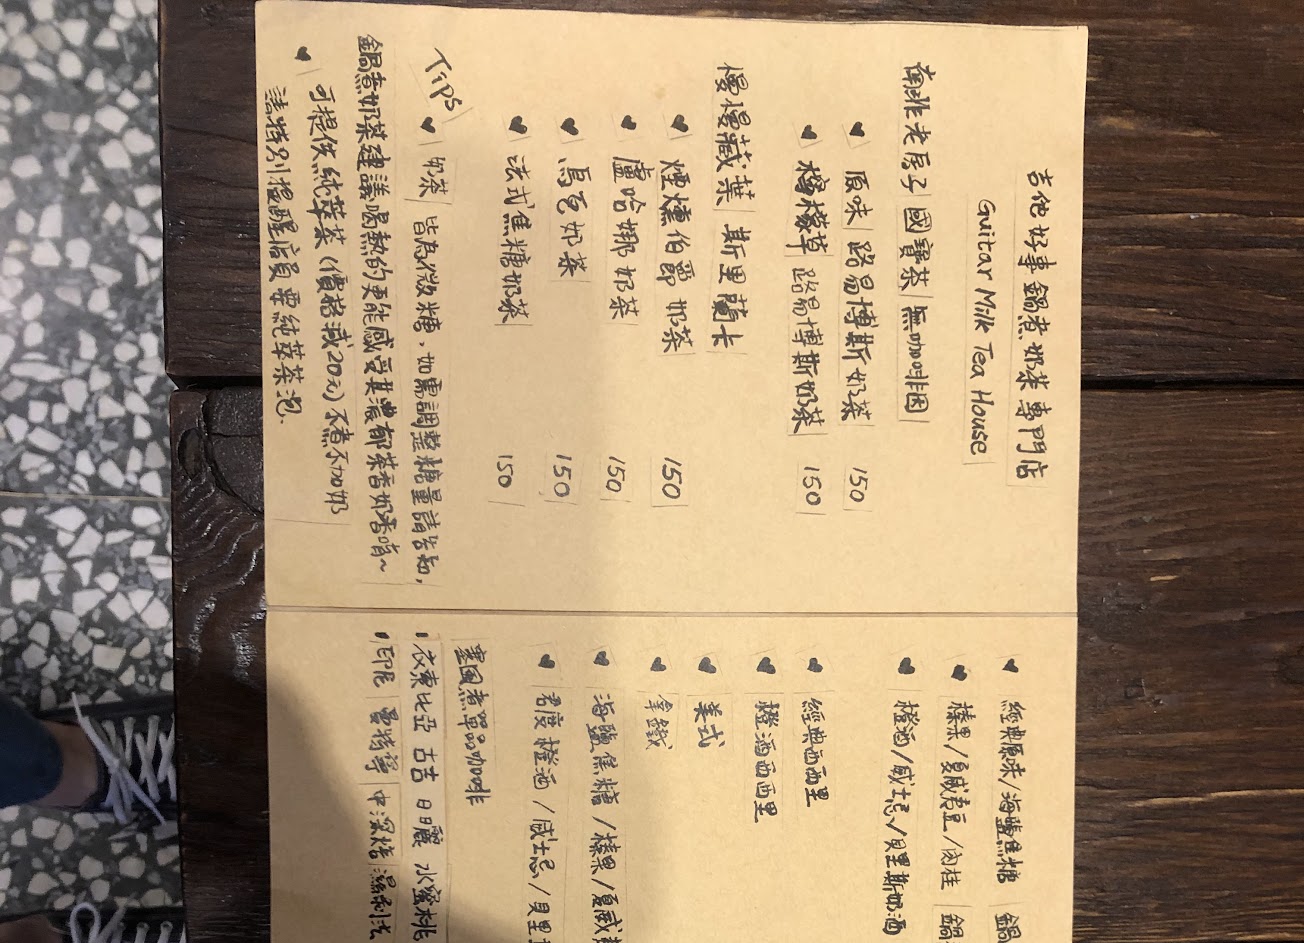 吉他好事 鍋煮奶茶專門店
Guitar Milk Tea House
南非老房子 國寶茶 無咖啡因
♥ 原味 路易博斯奶茶 150
♥ 檸檬草 路易博斯奶茶 150
慢慢藏葉 斯里蘭卡
♥ 煙燻伯爵 奶茶 150
♥ 盧哈娜 奶茶 150
♥ 烏瓦奶茶 150
♥ 法式焦糖奶茶 150
Tips
♥ 奶茶 皆為微糖,如需調整糖量請告知,
鍋煮奶茶建議喝熱的更能感受其濃郁茶香奶香唷~
♥ 可提供純萃茶(價格減20元)不煮不加奶
請特別提醒店員要純萃茶泡.
♥ 經典原味/海鹽焦糖 鍋
♥ 榛果/夏威夷豆/肉桂 鍋
♥ 橙酒/威士忌/貝里斯奶酒
♥ 經典西西里
♥ 橙酒西西里
♥ 美式
♥ 拿鐵
♥ 海鹽焦糖/榛果/夏威
♥ 君度橙酒/威士忌/貝里
塞風煮單品咖啡
衣索比亞 古吉 日曬 水蜜桃
印尼 曼特寧 中深焙 濕剝法